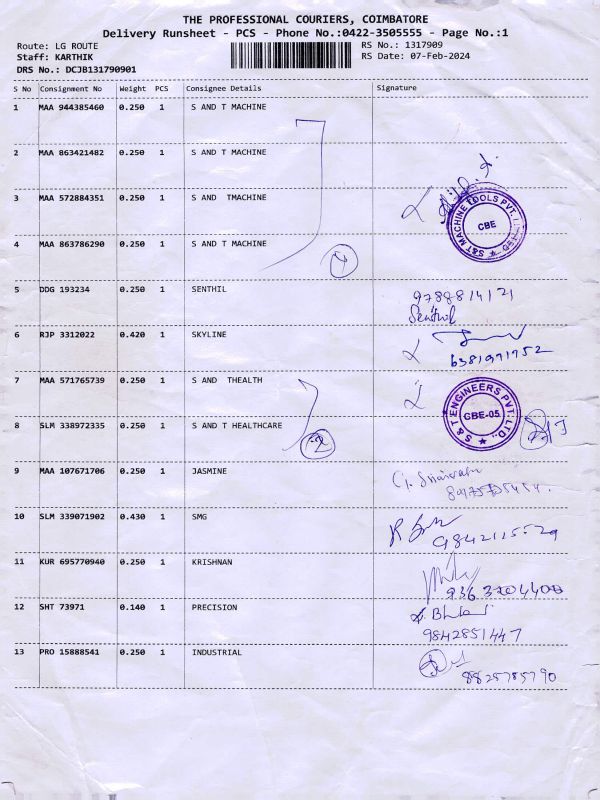 THE PROFESSIONAL COURIERS, COIMBATORE
Delivery Runsheet - PCS - Phone No.:0422-3505555 - Page No.:1
Route: LG ROUTE RS No.: 1317909
Staff: KARTHIK RS Date: 07-Feb-2024
DRS No.: DCJB131790901
S No Consignment No Weight PCS Consignee Details Signature
1 MAA 944385460 0.250 1 S AND T MACHINE
2 MAA 863421482 0.250 1 S AND T MACHINE
3 MAA 572884351 0.250 1 S AND TMACHINE
S&T MACHINE TOOLS PVT. CBE
4 MAA 863786290 0.250 1 S AND T MACHINE
5 DDG 193234 0.250 1 SENTHIL
9788814121
Senthil
6 RJP 3312022 0.420 1 SKYLINE
6381971752
7 MAA 571765739 0.250 1 S AND THEALTH
S & T ENGINEERS PVT. LTD. CBE-05
8 SLM 338972335 0.250 1 S AND T HEALTHCARE
9 MAA 107671706 0.250 1 JASMINE
10 SLM 339071902 0.430 1 SMG
9842115529
11 KUR 695770940 0.250 1 KRISHNAN
12 SHT 73971 0.140 1 PRECISION
9842851447
13 PRO 15888541 0.250 1 INDUSTRIAL
8825785790